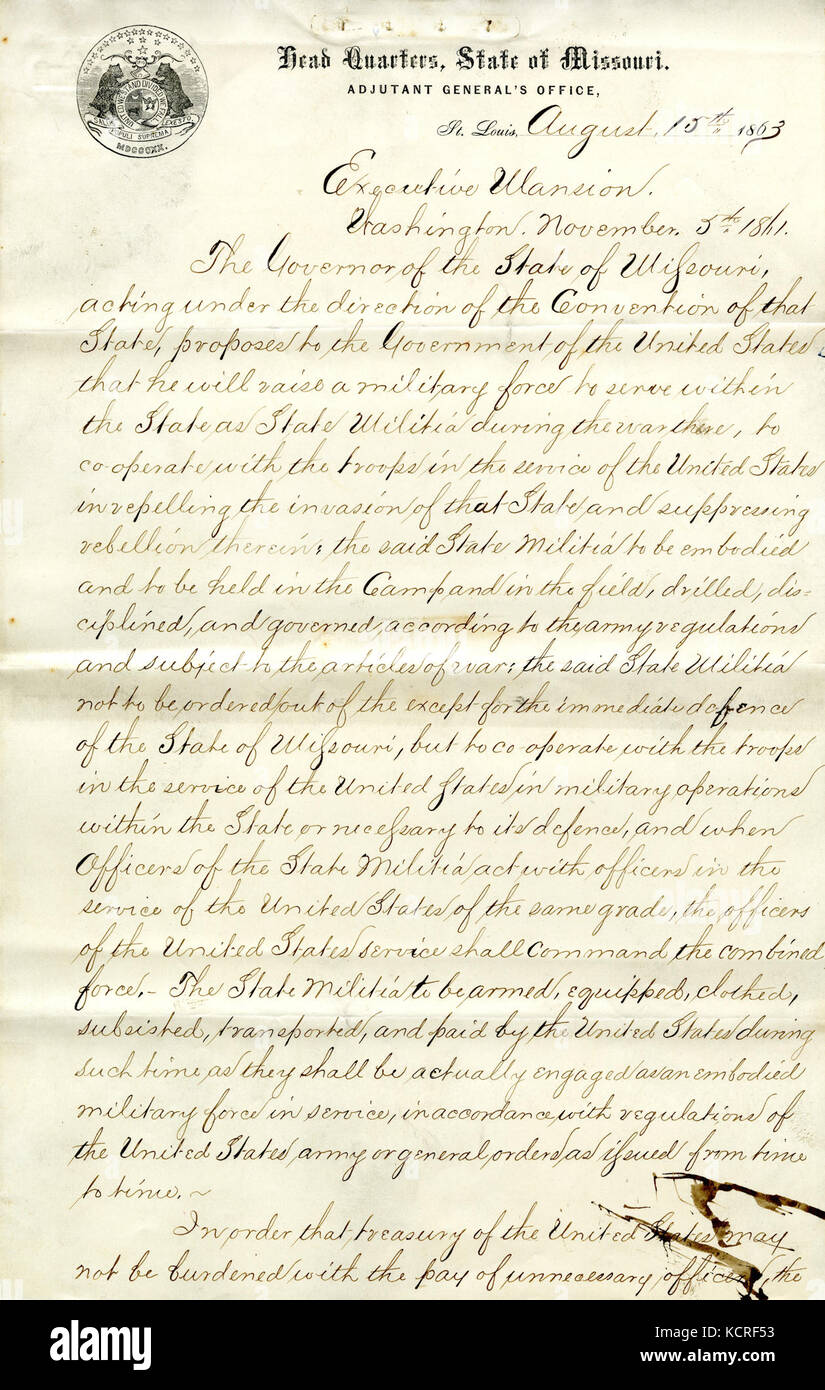 Head Quarters, State of Missouri.
ADJUTANT GENERAL'S OFFICE,
St. Louis, August, 15th 1863
UNITED WE STAND DIVIDED WE FALL
SALUS POPULI SUPREMA LEX ESTO
MDCCCXX.
Executive Mansion.
Washington. November. 5th 1861.
The Governor of the State of Missouri,
acting under the direction of the Convention of that
State, proposes to the Government of the United States
that he will raise a military force to serve within
the State as State Militia during the war there, to
co-operate with the troops in the service of the United States
in repelling the invasion of that State and suppressing
rebellion therein; the said State Militia to be embodied
and to be held in the Camp and in the field, drilled, dis=
ciplined, and governed, according to the army regulations
and subject to the articles of war; the said State Militia
not to be ordered out of the except for the immediate defence
of the State of Missouri, but to co-operate with the troops
in the service of the United States in military operations
within the State or necessary to its defence, and when
Officers of the State Militia act with officers in the
service of the United States of the same grade, the officers
of the United States service shall command the combined
force. - The State Militia to be armed, equipped, clothed,
subsisted, transported, and paid by the United States during
such time as they shall be actually engaged as an embodied
military force in service, in accordance with regulations of
the United States army or general orders as issued from time
to time. ~
In order that treasury of the United States may
not be burdened with the pay of unnecessary officers, the
alamy
Image ID: KCRF53
www.alamy.com